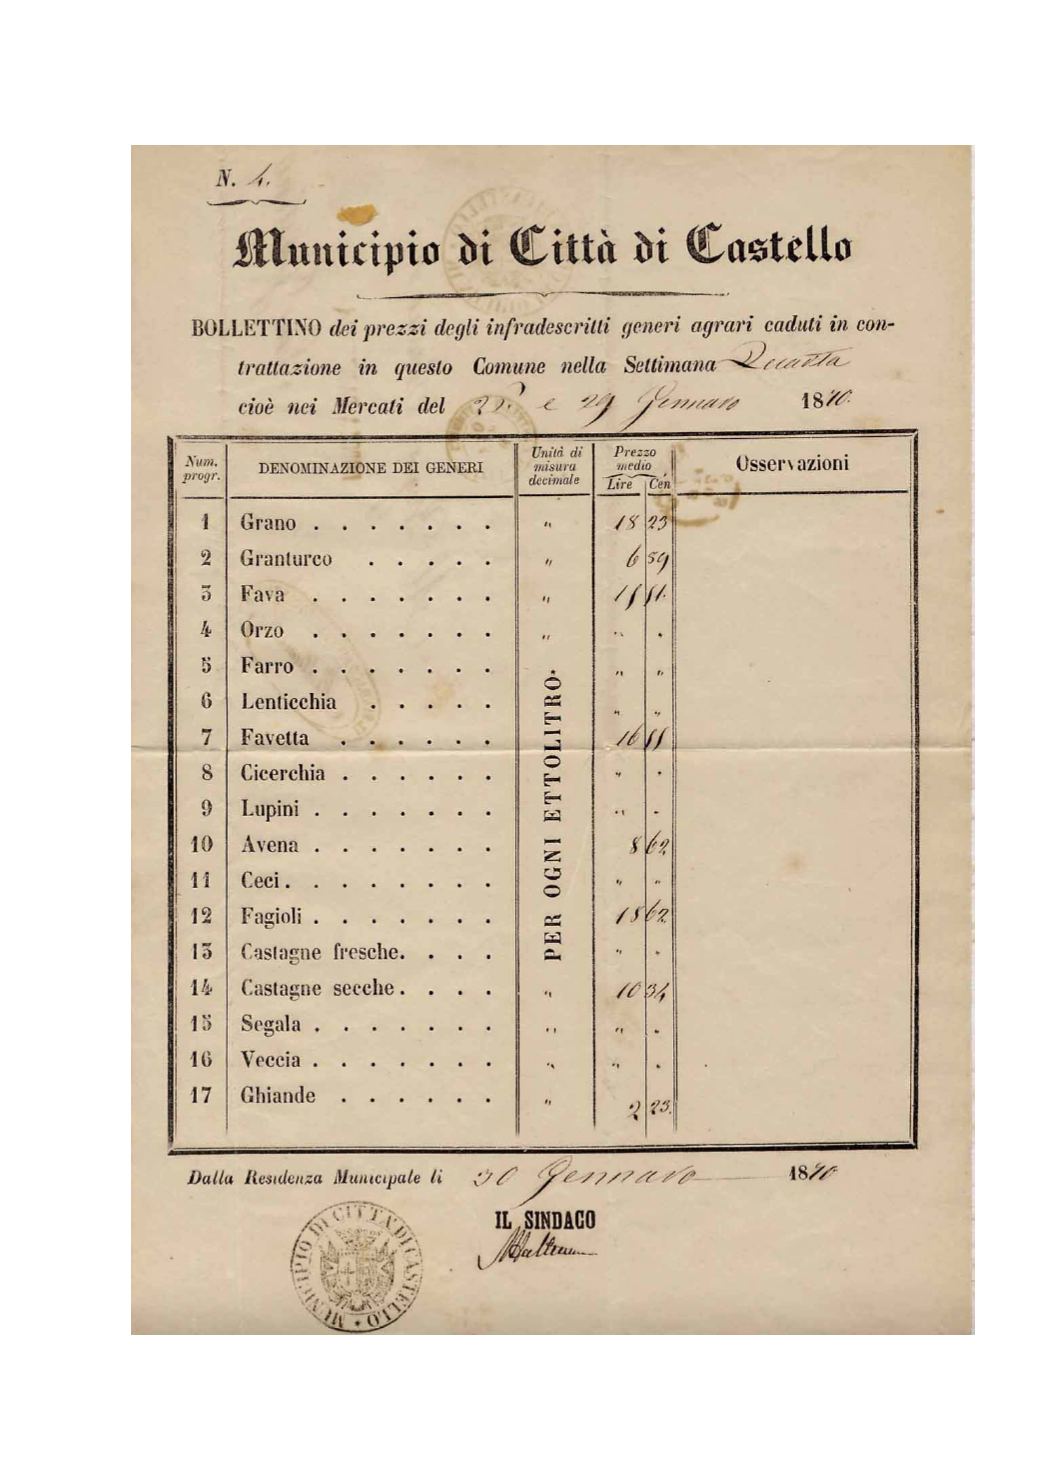 N. 4.
Municipio di Città di Castello
BOLLETTINO dei prezzi degli infradescritti generi agrari caduti in con-
trattazione in questo Comune nella Settimana Quarta
cioè nei Mercati del e 29 Gennaro 1870.
Num. progr. DENOMINAZIONE DEI GENERI Unità di misura decimale Prezzo medio Lire Cen Osservazioni
PER OGNI ETTOLITRO.
1 Grano . . . . . . . " 18 23
2 Granturco . . . . . " 6 59
3 Fava . . . . . . . "
4 Orzo . . . . . . . " " .
5 Farro . . . . . . . " "
6 Lenticchia . . . . . " "
7 Favetta . . . . . . 16
8 Cicerchia . . . . . . " .
9 Lupini . . . . . . . " .
10 Avena . . . . . . . 8 62
11 Ceci . . . . . . . . " "
12 Fagioli . . . . . . . 18 62
13 Castagne fresche . . . . " .
14 Castagne secche . . . . " 10 34
15 Segala . . . . . . . " " .
16 Veccia . . . . . . . " " .
17 Ghiande . . . . . . " 2 23.
Dalla Residenza Municipale li 30 Gennaro 1870
IL SINDACO
MUNICIPIO DI CITTÀ DI CASTELLO